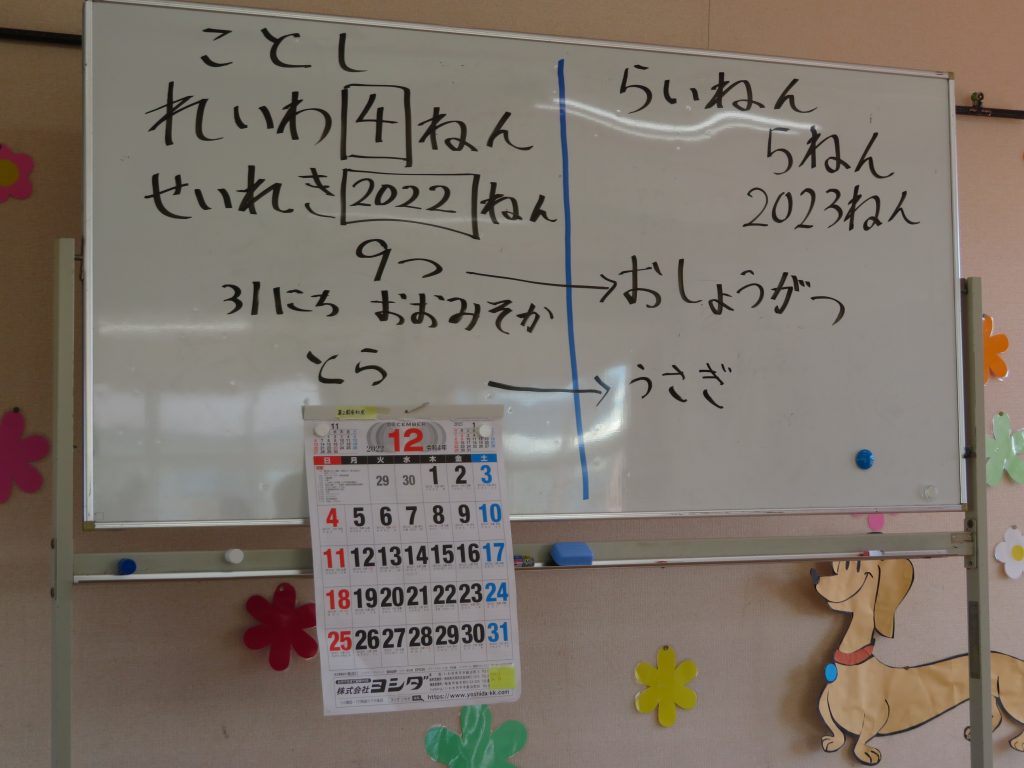 ことし
れいわ 4 ねん
せいれき 2022 ねん
9つ → おしょうがつ
31にち おおみそか
とら → うさぎ
らいねん
5ねん
2023ねん
11
DECEMBER
12
2022 令和4年
1
日 月 火 水 木 金 土
29 30 1 2 3
4 5 6 7 8 9 10
11 12 13 14 15 16 17
18 19 20 21 22 23 24
25 26 27 28 29 30 31
株式会社 ヨシダ
https://www.yoshida-kk.com